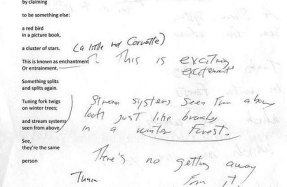 by claiming
to be something else:
a red bird
in a picture book,
a cluster of stars.
(a little red Corvette)
This is known as enchantment
Or entrainment.
This is exciting
excitement
Something splits
and splits again.
Tuning fork twigs
on winter trees;
and stream systems
seen from above
Stream systems seen from above
look just like branches
in a winter forest.
See,
they're the same
person
There's no getting away
from it.